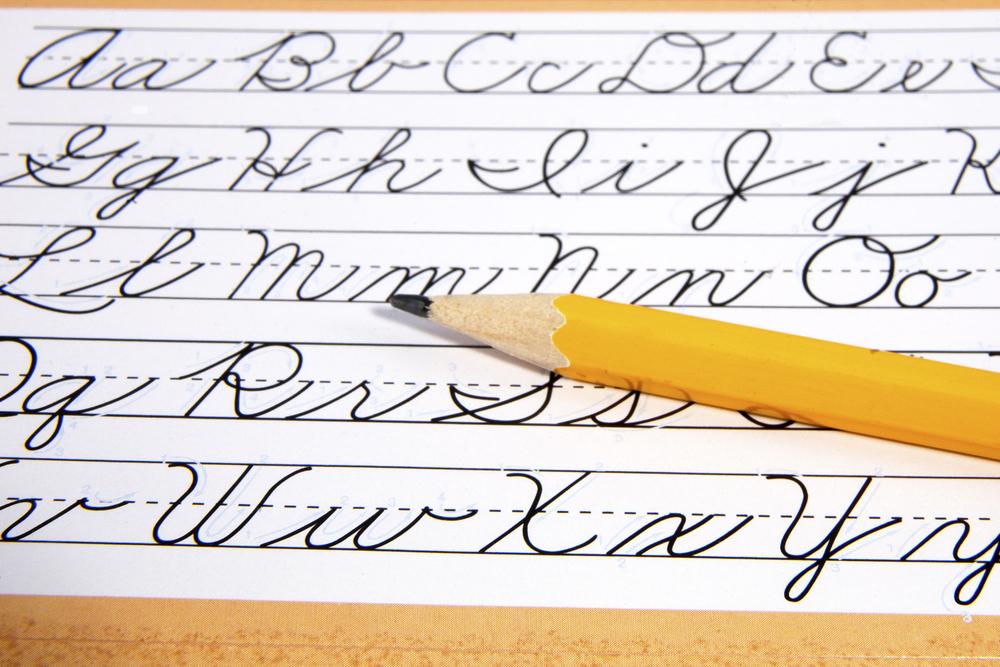 Aa Bb Cc Dd Ee
Gg Hh Ii Jj K
Ll Mm Nn Oo
q Rr Ss
v Ww Xx Yy